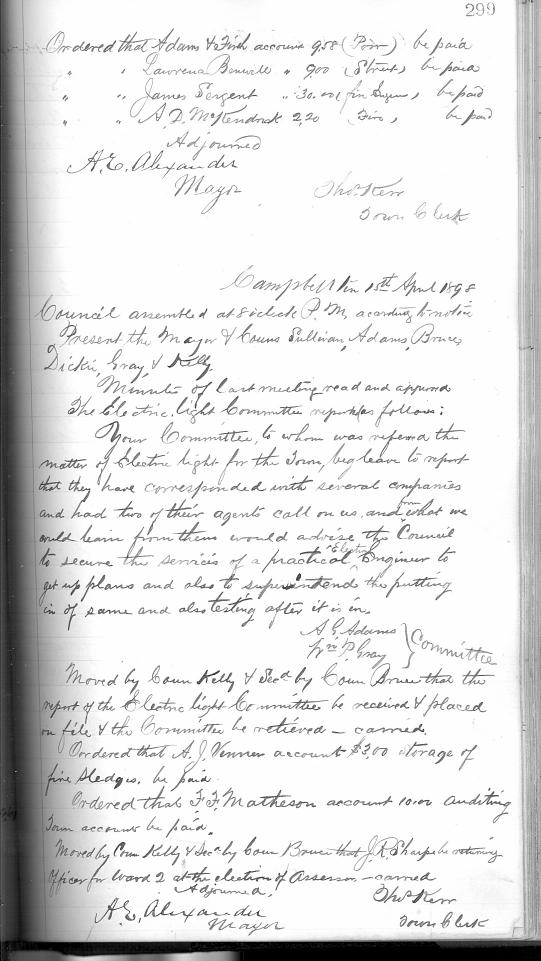 299
Ordered that Adams & Firth account 9.58 (Poor) be paid
" " Lawrence 9.00 (Street) be paid
" " James Sergent " 30.00 (fire Engine) be paid
" " A. D. McKendrick 2.20 Fire, be paid
Adjourned
A. E. Alexander
Mayor
Thos Kerr
Town Clerk
Campbellton 15th April 1898
Council assembled at 8 o'clock P.M. according to notice
Present the Mayor & Couns Sullivan, Adams, Bruce,
Dickie, Gray, & Kelly.
Minutes of last meeting read and approved
The Electric light Committee report as follows:
Your Committee, to whom was referred the
matter of Electric light for the Town, beg leave to report
that they have corresponded with several companies
and had two of their agents call on us, and from what we
could learn from them would advise the Council
to secure the services of a practical Electric Engineer to
get up plans and also to superintend the putting
in of same and also testing after it is in.
A. G. Adams
Wm P. Gray } Committee
Moved by Coun Kelly & Secd by Coun Bruce that the
report of the Electric light Committee be received & placed
on file & the Committee be retieved — carried.
Ordered that A. J. Venner account $3.00 storage of
fire sledges, be paid.
Ordered that F. F. Matheson account 10.00 auditing
Town accounts be paid.
Moved by Coun Kelly & Secd by Coun Bruce that J. R. Sharpe be returning
Officer for Ward 2 at the election of Assessor — carried
Adjourned.
Thos Kerr
A. E. Alexander
Town Clerk
Mayor